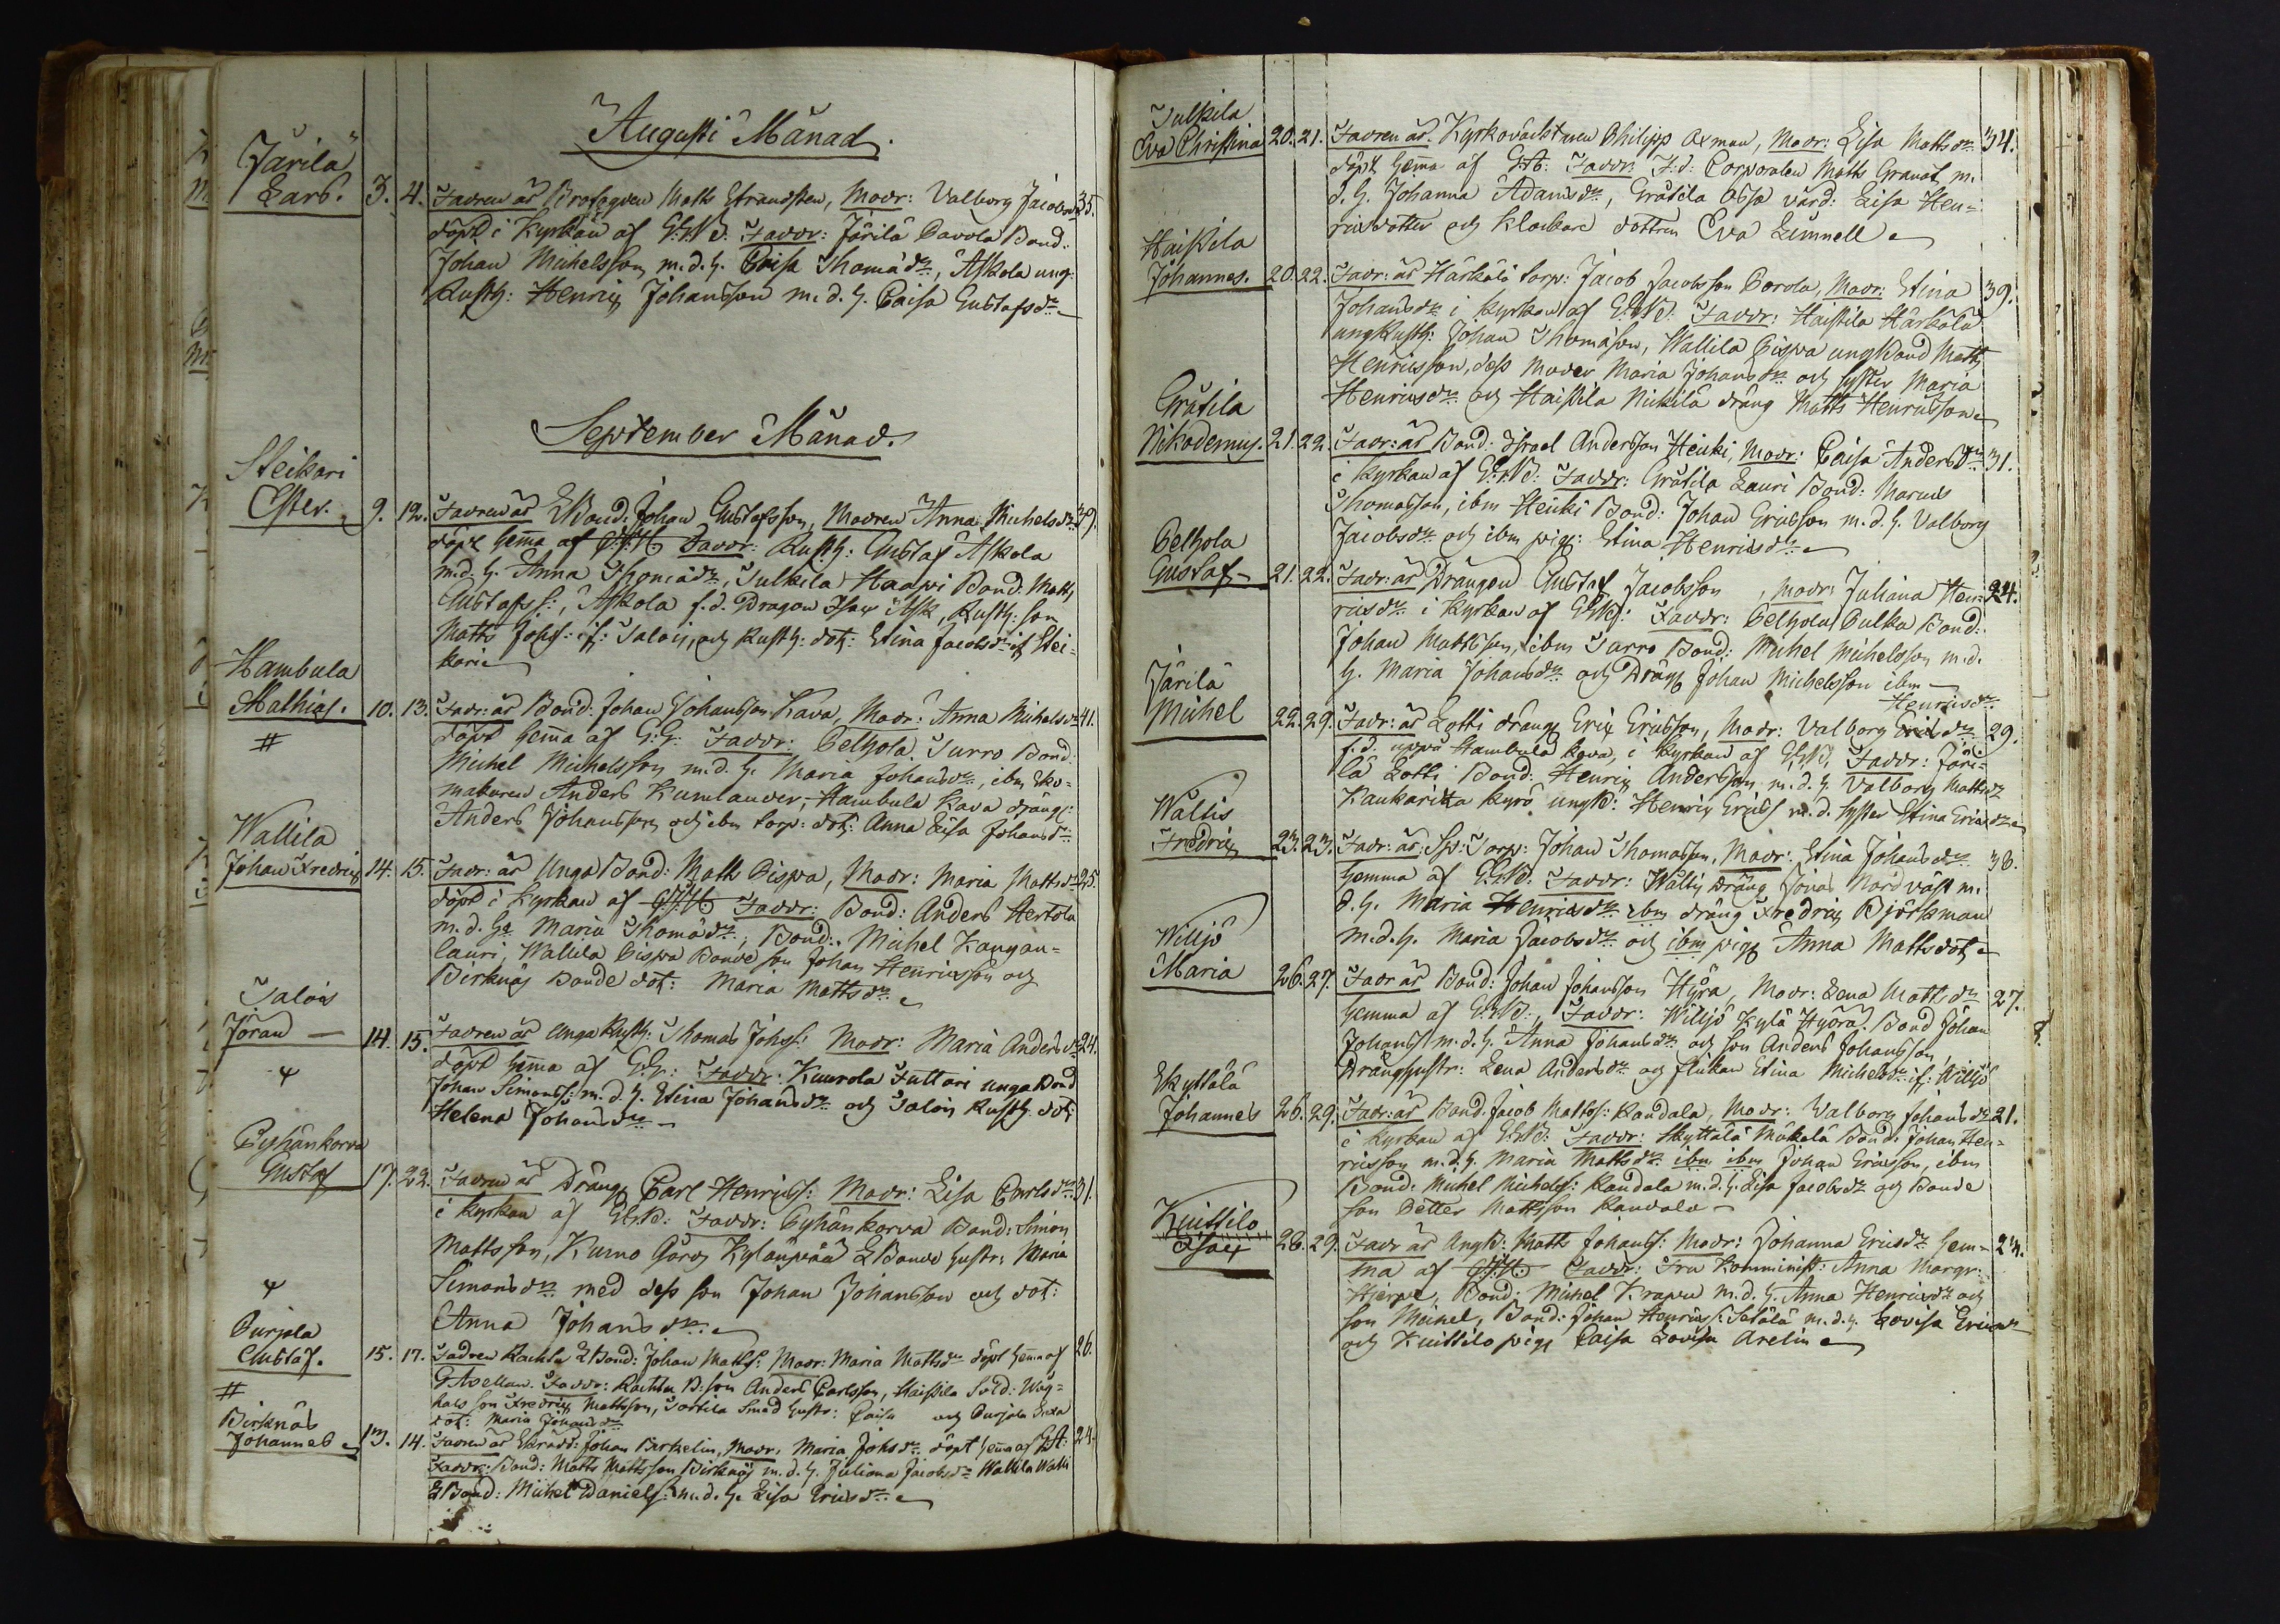 Augusti Månad.
Järilä
Lars. 3. 4. Fadren är Brofogden Matts Strandsten, Modr: Valborg Jacobsdr 35.
döpt i Kyrkan af Faddr: Järilä Pavola Bond:
Johan Michelsson m.d.h. Caisa Thomädr, Askola ung
Rusth: Henric Johansson m.d.h. Caisa Gustafsdr
September Månad.
Steikari
Ester. 9. 12. Fadren är Bond: Johan Gustafsson, Modren Anna Michelsdr 39.
döpt hema af Faddr: Rusth: Gustaf Askola
m.d.h. Anna Thomädr, Sulkila Haapi Bond: Matts
Gustafss:, Askola f.d. Dragon Isac Ask, Rusth: son
Matts Johss: if: Talois, och Rusth: dot: Stina Jacobsdr if Stei=
kari
Hambula
Mathias. 10. 13. Fadr: är Bond: Johan Johansson Kava, Modr: Anna Michelsdr 41.
#
döpt hema af G:G: Faddr: Pelhola Surro Bond:
Michel Michelsson m.d.h. Maria Johansdr, ibm Sko=
makaren Anders Kumlander, Hambula Kava dräng:
Anders Johansson och ibm torp: dot: Anna Lisa Johansdr
Wallila
Johan Fredric 14. 15. Fadr: är Unga Bond: Matts Pispa, Modr: Maria Mattsdr 25.
döpt i Kyrkan af Faddr: Bond: Anders Hertola
m.d.h. Maria Thomädr, Bond: Michel Kangan=
lauri, Wallila Pispa Bonde son Johan Henricsson och
Birknäs Bonde dot: Maria Mattsdr
Talois
Jöran — 14. 15. Fadren är Unga Rusth: Thomas Johss: Modr: Maria Andersdr 24.
döpt hema af G.G: Faddr: Kuurola Juttari unga Bond
Johan Simonss: m.d.h. Stina Johansdr och Talois Rusth: dot:
Helena Johansdr
Pyhänkorva
Gustaf 17. 22. Fadren är Dräng Carl Henricss: Modr: Lisa Carlsdr 31.
i kyrkan af Faddr: Pyhänkorva Bond: Simon
Mattsson, Kumo Gård Kylänpää Bonde hustr: Maria
Simonsdr med dess son Johan Johansson och dot:
Anna Johansdr
Purjala
Gustaf. 15. 17. Fadren Rachtu Bond: Johan Matts: Modr: Maria Mattsdr döpt hema af 26.
#
G Avellan. Faddr: Rachtu B: son Anders Carlsson, Haistila Sold: Wag=
hals son Fredric Mattsson, Torttila Smed hustr: Caisa och Purjala Inta
dot: Maria Johansdr
Birknäs
Johannes 13. 14. Fadren är Skrädd: Johan Birkelin, Modr: Maria Johsdr döpt hema af G:A: 24.
Faddr: Bond: Matts Mattsson Birknäs m.d.h. Juliana Jacobsdr Wallila Walli
Bond: Michel Daniels: m.d.h. Lisa Ericsdr
Sulkila
Eva Christina 20. 21. Fadren är Kyrkoväcktaren Philipp Axman, Modr: Lisa Mattsdr 34.
döpt hema af G:A: Faddr: F:d: Corporalen Matts Granat m.
d.h. Johanna Adamsdr, Gråtila Ossa värd: Lisa Hen=
ricsdotter och Klockare dottren Eva Limnell
Haistila
Johannes. 20. 22. Fadr: är Härkälä torp: Jacob Jacobsson Porola, Modr: Stina 39.
Johansdr i Kyrkan af Faddr: Haistila Härkälä
ung Rusth: Johan Thomasson, Wallila Pispa ung Bond Matts
Henricsson, dess moder Maria Johansdr och syster Maria
Henricsdr och Haistila Nickilä dräng Matts Henricsson
Gråtila
Nikodemus. 21. 22. Fadr: är Bond: Israel Andersson Heicki, Modr: Caisa Andersdr 31.
i Kyrkan af Faddr: Gråtila Lauri Bond: Marcus
Thomasson, ibm Heicki Bond: Johan Ericsson m.d.h. Valborg
Jacobsdr och ibm pig: Stina Henricsdr
Pelhola
Gustaf— 21. 22. Fadr: är Drängen Gustaf Jacobsson, Modr: Juliana Hen= 24.
ricsdr i Kyrkan af Faddr: Pelhola Pulka Bond:
Johan Mattsson, ibm Surro Bond: Michel Michelsson m.d.
h. Maria Johansdr och Dräng Johan Michelsson ibm
Järilä
Michel 22. 29. Fadr: är Lotti dräng Eric Ericsson, Modr: Valborg Henricsdr 29.
f.d. uppå Hambula Kava, i Kyrkan af Faddr: Järi=
lä Lotti Bond: Henric Andersson m.d.h. Valborg Mattsdr
Kaukaritza Kyrö ungk: Henric Ericss m.d. syster Stina Ericsdr
Wallis
Fredric 23. 23. Fadr: är Torp: Johan Thomasson, Modr: Stina Johansdr 38.
hemma af Faddr: Wallis Dräng Jonas Nordväst m.
d.h. Maria Henricsdr ibm dräng Fredric Björkman
m.d.h. Maria Jacobsdr och ibm pig Anna Mattsdot
Willjo
Maria 26. 27. Fadr är Bond: Johan Johansson Hyra, Modr: Lena Mattsdr 27.
hemma af Faddr: Willjo Kylä Hyöra Bond Johan
Johanss m.d.h. Anna Johansdr och son Anders Johansson,
Dränghustr: Lena Andersdr och flickan Stina Michelsdr if: Willjo
Skyttälä
Johannes 26. 29. Fadr: är Bond. Jacob Mattss: Kandala, Modr: Valborg Johansdr 21.
i Kyrkan af Faddr: Skyttälä Mäkelä Bond: Johan Hen=
ricsson m.d.h. Maria Mattsdr ibm ibm Johan Ericsson, ibm
Bond: Michel Michelss: Kandala m.d.h. Lisa Jacobsdr och Bonde
son Petter Mattsson Kandala
Kuittilo
Isac 28. 29. Fadr är Ungk: Matts Johanss: Modr: Johanna Ericsdr hem= 23.
ma af Faddr: Fru Komminist: Anna Margr:
Hjerpe, Bond: Michel Krapu m.d.h. Anna Henricsdr och
son Michel, Bond: Johan Henricss: Setälä m.d.h. Lovisa Ericsdr
och Kuittilo pig Caisa Lovisa Arelin